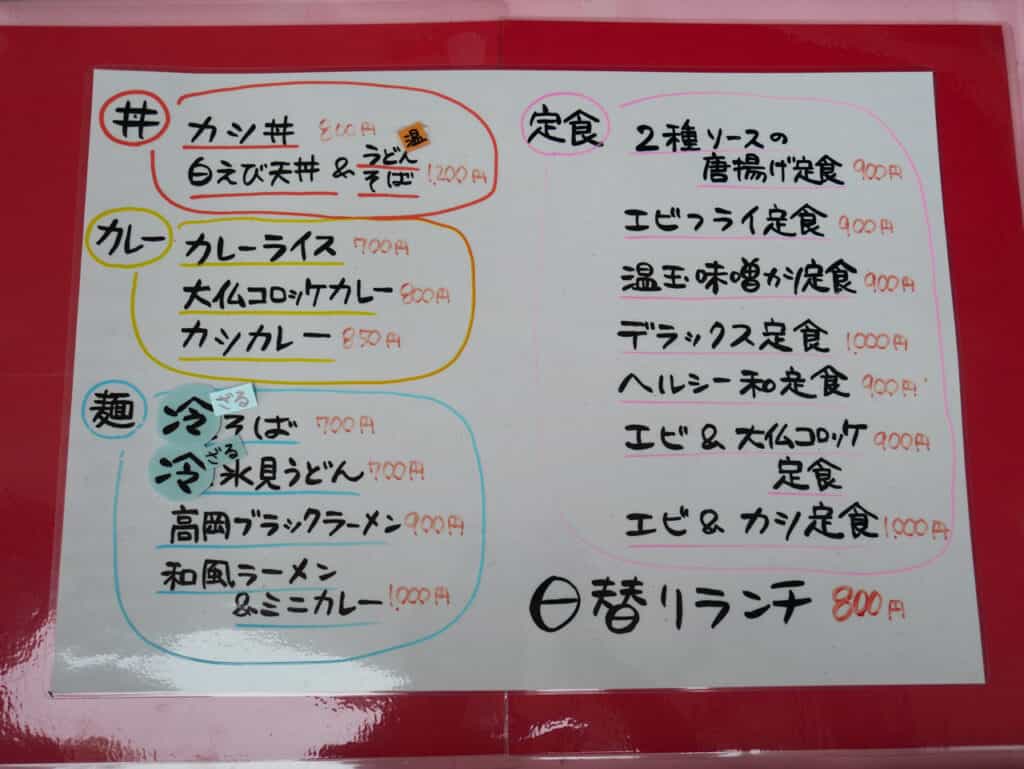 丼
カツ丼 800円
温
白えび天丼 & うどん
そば 1,200円
カレー
カレーライス 700円
大仏コロッケカレー 800円
カツカレー 850円
麺
冷 ざる そば 700円
冷 ざる 氷見うどん 700円
高岡ブラックラーメン 900円
和風ラーメン
&ミニカレー 1,000円
定食
2種ソースの
唐揚げ定食 900円
エビフライ定食 900円
温玉味噌カツ定食 900円
デラックス定食 1,000円
ヘルシー和定食 900円
エビ & 大仏コロッケ 900円
定食
エビ & カツ定食 1,000円
日替りランチ 800円